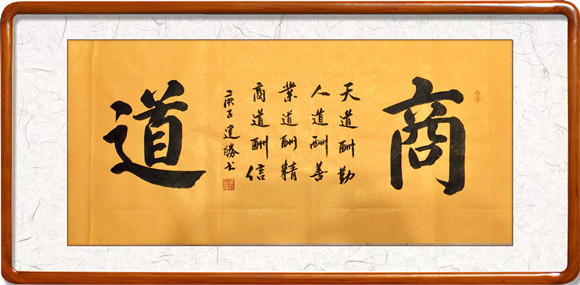 商
天道酬勤
人道酬善
業道酬精
商道酬信
庚子建勝书
道